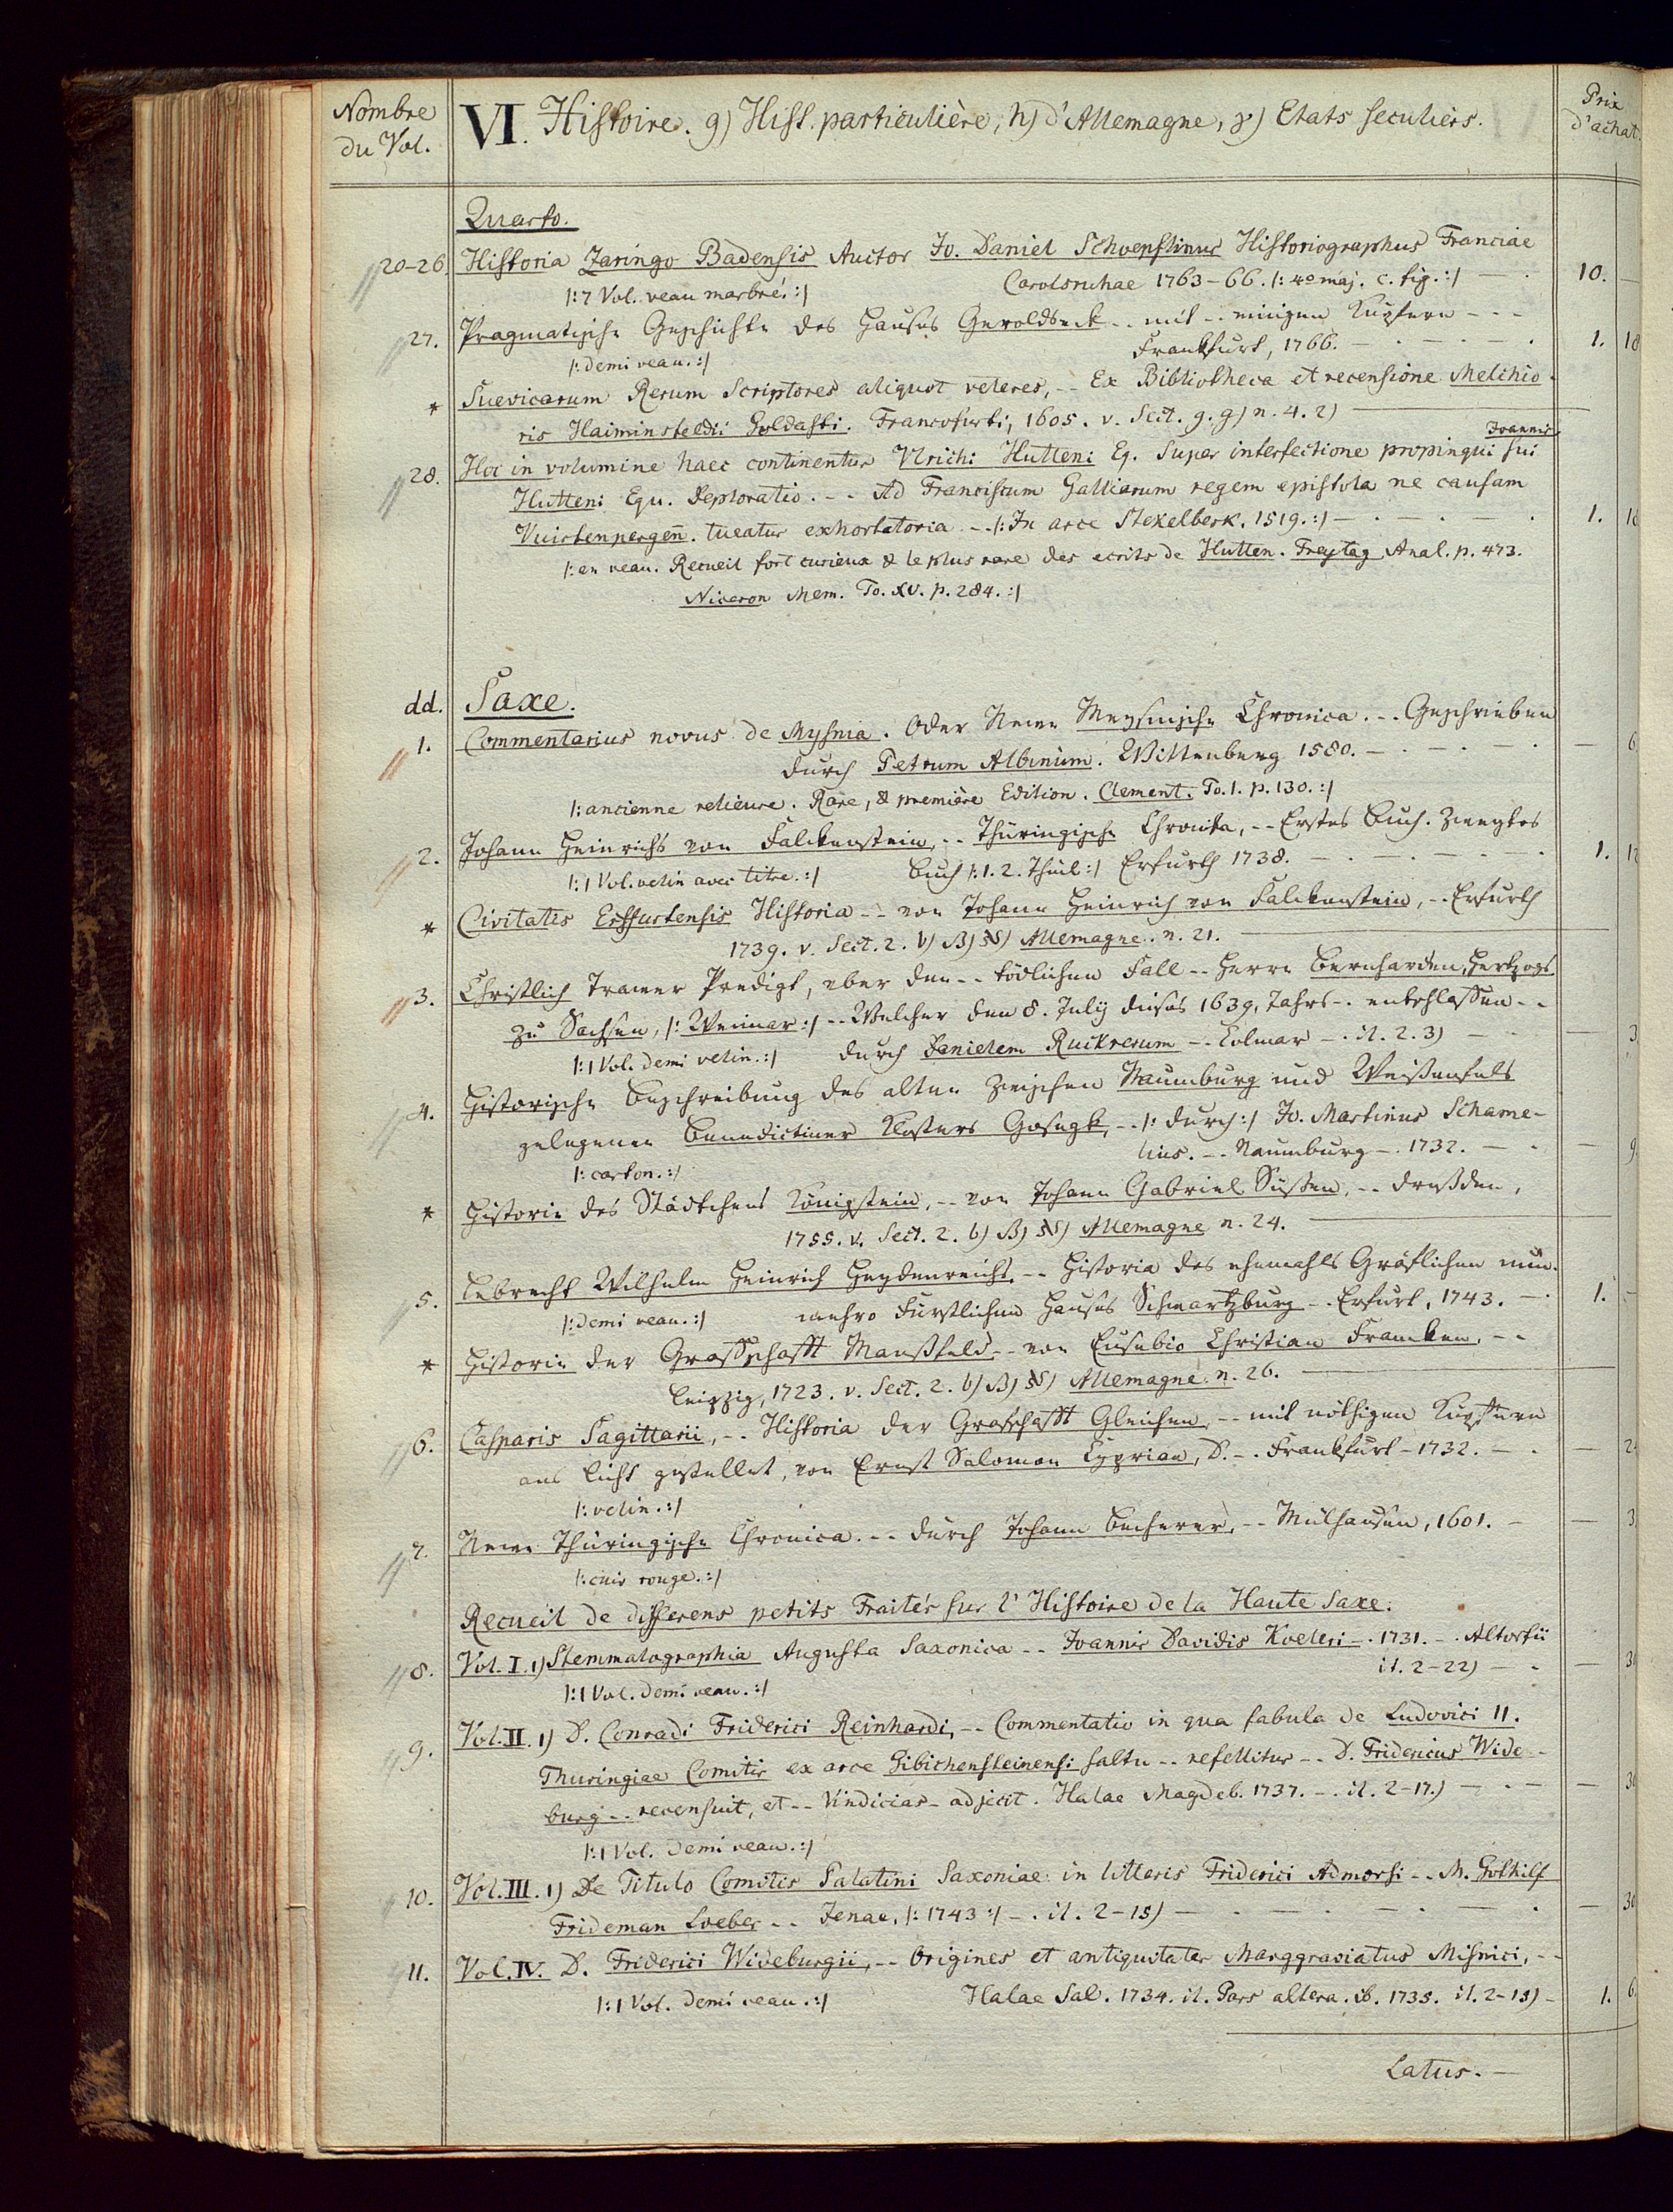 Nombre
du Vol.
VI. Histoire. g) Hist. particulière, h) d'Allemagne, γ) Etats seculiers.
Prix
d'achat.
Quarto.
20-26. Historia Zaringo Badensis Auctor Jo. Daniel Schoepflinus Historiographus Franciae
|: 7 Vol. veau marbré. :| Carolsruhae 1763-66. |: 4o maj. c. fig. :| — . 10. —
27. Pragmatische Geschichte des Hauses Geroldseck -- mit -- einigen Kupfern - - -
|: demi veau. :| Frankfurt, 1766. — . — . — . 1. 18
* Suevicarum Rerum Scriptores aliquot veteres, -- Ex Bibliotheca et recensione Melchio-
ris Haiminsfeldii Goldasti. Francofurti, 1605. v. Sect. g. g) n. 4. 2) —
Joannis
28. Hoc in volumine haec continentur Vlrichi Hutteni Eq. Super interfectione propinqui sui
Hutteni Equ. Deploratio. -- Ad Franciscum Galliarum regem epistola ne causam
Vuirtenpergen̄. tueatur exhortatoria -- |: In arce Stekelberk. 1519. :| — . — . — . 1. 18
|: en veau. Recueil fort curieux & le plus rare des ecrits de Hutten. Freytag Anal. p. 473.
Niceron Mem. To. XV. p. 284. :|
dd. Saxe.
1. Commentarius novus de Mysnia. Oder Newe Meysnische Chronica. -- Geschrieben
durch Petrum Albinum. Wittenberg 1580. — . — . — . — 6
|: ancienne relieure. Rare, & première Edition. Clement. To. I. p. 130. :|
2. Johann Heinrichs von Falckenstein, -- Thüringische Chronika, -- Erstes Buch. Zweytes
|: 1 Vol. velin avec titre. :| Buch |: 1. 2. Theil :| Erfurth 1738. — . — . — . 1. 12
* Civitatis Erffurtensis Historia -- von Johann Heinrich von Falckenstein, -- Erfurth
1739. v. Sect. 2. b) β) Allemagne. n. 21. —
3. Christlich Trawer Predigt, vber den -- tödlichen Fall -- Herrn Bernharden, Hertzogs
zu Sachsen, |: Weimar :| -- Welcher den 8. July dieses 1639. Jahrs -- entschlaffen --
|: 1 Vol. demi velin. :| durch Danielem Ruckerum -- Colmar -. it. 2. 3) — . — 3
4. Historische Beschreibung des alten zwischen Naumburg und Weißenfels
gelegenen Benedictiner Klosters Gosegk, -- |: durch :| Jo. Martinus Schame-
|: carton. :| lius. -- Naumburg -. 1732. — . — 9
* Historie des Städtchens Königstein, -- von Johann Gabriel Süssen, -- Dreßden,
1755. v. Sect. 2. b) β) Allemagne n. 24. —
5. Lebrecht Wilhelm Heinrich Heydenreichs -- Historia des ehemahls Gräflichen nun-
|: demi veau. :| mehro Fürstlichen Hauses Schwartzburg -- Erfurt, 1743. — . 1. —
* Historie der Graffschafft Manßfeld -- von Eusebio Christian Francken, --
Leipzig, 1723. v. Sect. 2. b) β) Allemagne. n. 26. —
6. Casparis Sagittarii, -- Historia der Grafschafft Gleichen, -- mit nöthigen Kupffern
ans Licht gestellet, von Ernst Salomon Cyprian, D. -. Frankfurt - 1732. — . — 24
|: velin. :|
7. Newe Thüringische Chronica. -- durch Johann Becherer, -- Mülhausen, 1601. — — 3
|: cuir rouge. :|
Recueil de differens petits Traités sur l'Histoire de la Haute Saxe.
8. Vol. I. 1) Stemmatographia Augusta Saxonica -- Joannis Davidis Koeleri -. 1731. -. Altorfii
|: 1 Vol. demi veau. :| it. 2-22) — . — 30
9. Vol. II. 1) D. Conradi Friderici Reinhardi, -- Commentatio in qua fabula de Ludovici II.
Thuringiae Comitis ex arce Gibichensteinensi saltu -- refellitur -- D. Fridericus Wide-
burg -- recensuit, et -- Vindicias - adjecit. Halae Magdeb. 1737. -. it. 2-17.) — . — — 30
|: 1 Vol. demi veau. :|
10. Vol. III. 1) De Titulo Comitis Palatini Saxoniae in litteris Friderici Admorsi -- M. Gothilf
Frideman Loeber -- Jenae, |: 1743 :| -. it. 2-15) — . — . — . — . — 30
11. Vol. IV. D. Friderici Wideburgii, -- Origines et antiquitates Marggraviatus Misnici, --
|: 1 Vol. demi veau. :| Halae Sal. 1734. it. Pars altera. ib. 1735. it. 2-15) - 1. 6
Latus. —